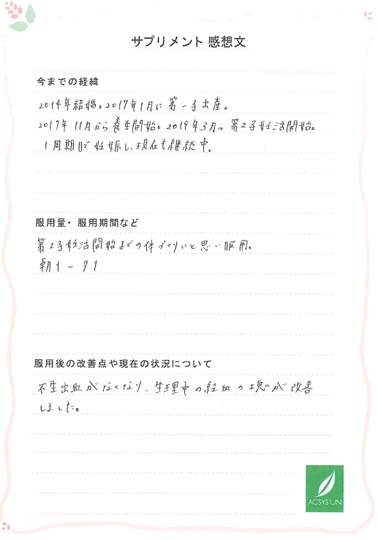 サプリメント 感想文
今までの経緯
2014年結婚。2017年1月に第一子出産。
2017年11月から養生開始。2019年3月〜第2子妊活開始。
1周期目で妊娠し、現在も継続中。
服用量・服用期間など
第2子妊活開始までの体づくりにと思い服用。
朝1-夕1
服用後の改善点や現在の状況について
不正出血がなくなり、生理中の経血の塊が改善
しました。
ACSYS'UN.